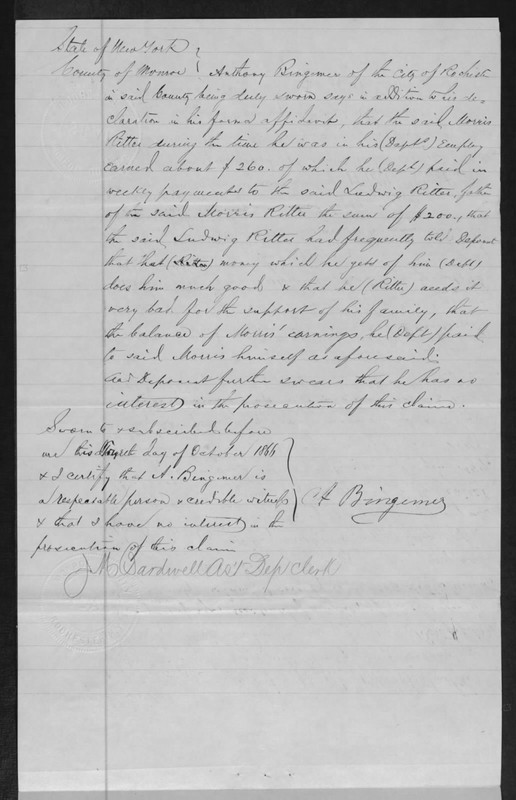 State of New York
County of Monroe } Anthony Bingemer of the City of Rochester
in said County being duly sworn says in addition to his de-
claration in his former affidavit, that the said Morris
Ritter during the time he was in his (Dept's) Employ
earned about $260. of which he (Dept) paid in
weekly payments to the said Ludwig Ritter, father
of the said Morris Ritter the sum of $200., that
the said Ludwig Ritter had frequently told Deponent
that that (Ritter) money which he gets of him (Dept)
does him much good & that he (Ritter) needs it
very bad for the support of his family, that
the balance of Morris' earnings, he (Dept) paid
to said Morris himself as aforesaid.
And Deponent further swears that he has no
interest in the prosecution of this claim.
Sworn to & subscribed before
me this day of October 1866
& I certify that A. Bingemer is
a respectable person & credible witness
& that I have no interest in the
prosecution of this claim
A Bingemer
J M Cardwell Ast Dep Clerk